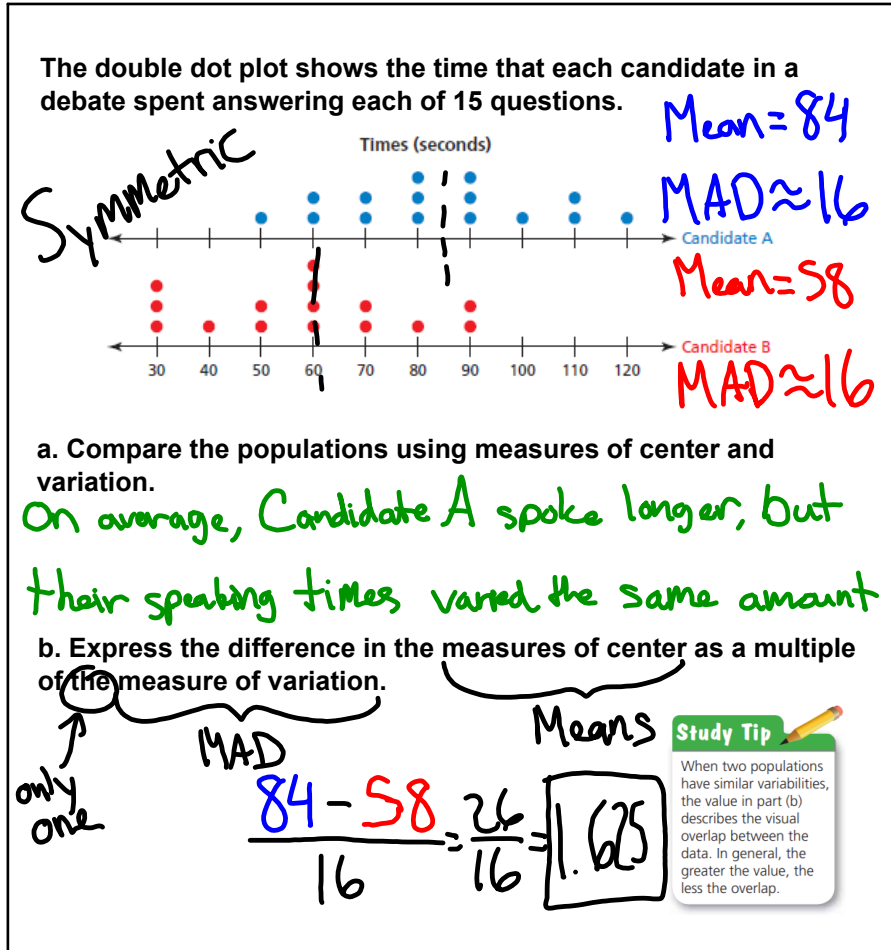 The double dot plot shows the time that each candidate in a
debate spent answering each of 15 questions.
Mean=84
Symmetric
Times (seconds)
MAD≈16
Candidate A
Mean=58
Candidate B
30 40 50 60 70 80 90 100 110 120
MAD≈16
a. Compare the populations using measures of center and
variation.
On average, Candidate A spoke longer, but
their speaking times varied the same amount
b. Express the difference in the measures of center as a multiple
of the measure of variation.
only
one
MAD
Means
84 - 58
16
= 26
16
= 1.625
Study Tip
When two populations
have similar variabilities,
the value in part (b)
describes the visual
overlap between the
data. In general, the
greater the value, the
less the overlap.